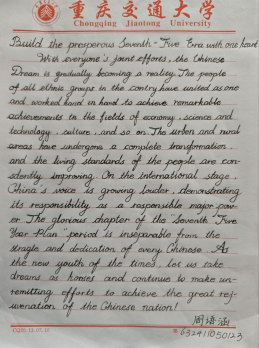 重庆交通大学
Chongqing Jiaotong University
Build the prosperous Seventh-Five Era with one heart
With everyone's joint efforts, the Chinese
Dream is gradually becoming a reality. The people
of all ethnic groups in the contry have united as one
and worked hand in hand to achieve remarkable
achievements in the fields of economy, science and
technology, culture, and so on. The urban and rural
areas have undergone a complete transformation
and the living standards of the people are con-
sdently improving. On the international stage,
China's voice is growing louder, demonstrating
its responsibility as a responsible major pow-
er. The glorious chapter of the "Seventh-Five
Year Plan" period is inseparable from the
stragle and dedication of every Chinese. As
the new youth of the times, let us take
dreams as horses and continue to make un-
remitting efforts to achieve the great rej-
uvenation of the Chinese nation!
周